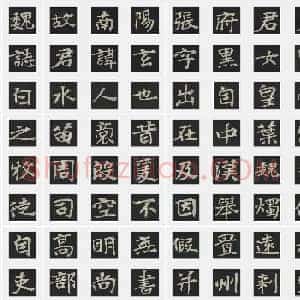 魏故南陽張府君
誌君諱玄字黑女
白水人也出自皇
之苗裔昔在中葉
牧周殷爰及漢魏
徒司空不因舉燭
自高明無假置遠
吏部尚書并州刺